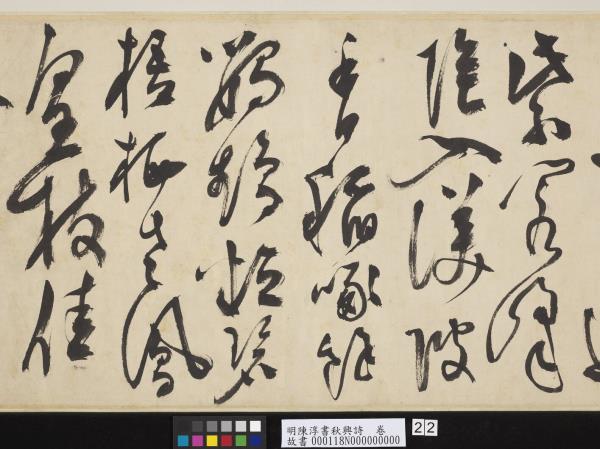 紫閣峰
陰入渼陂
香稻啄餘
鸚鵡粒碧
梧栖老鳳
皇枝佳
明陳淳書秋興詩　卷
故書 000118N000000000
22